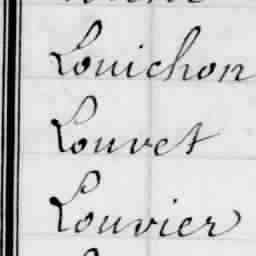 Louichon
Louvet
Louvier